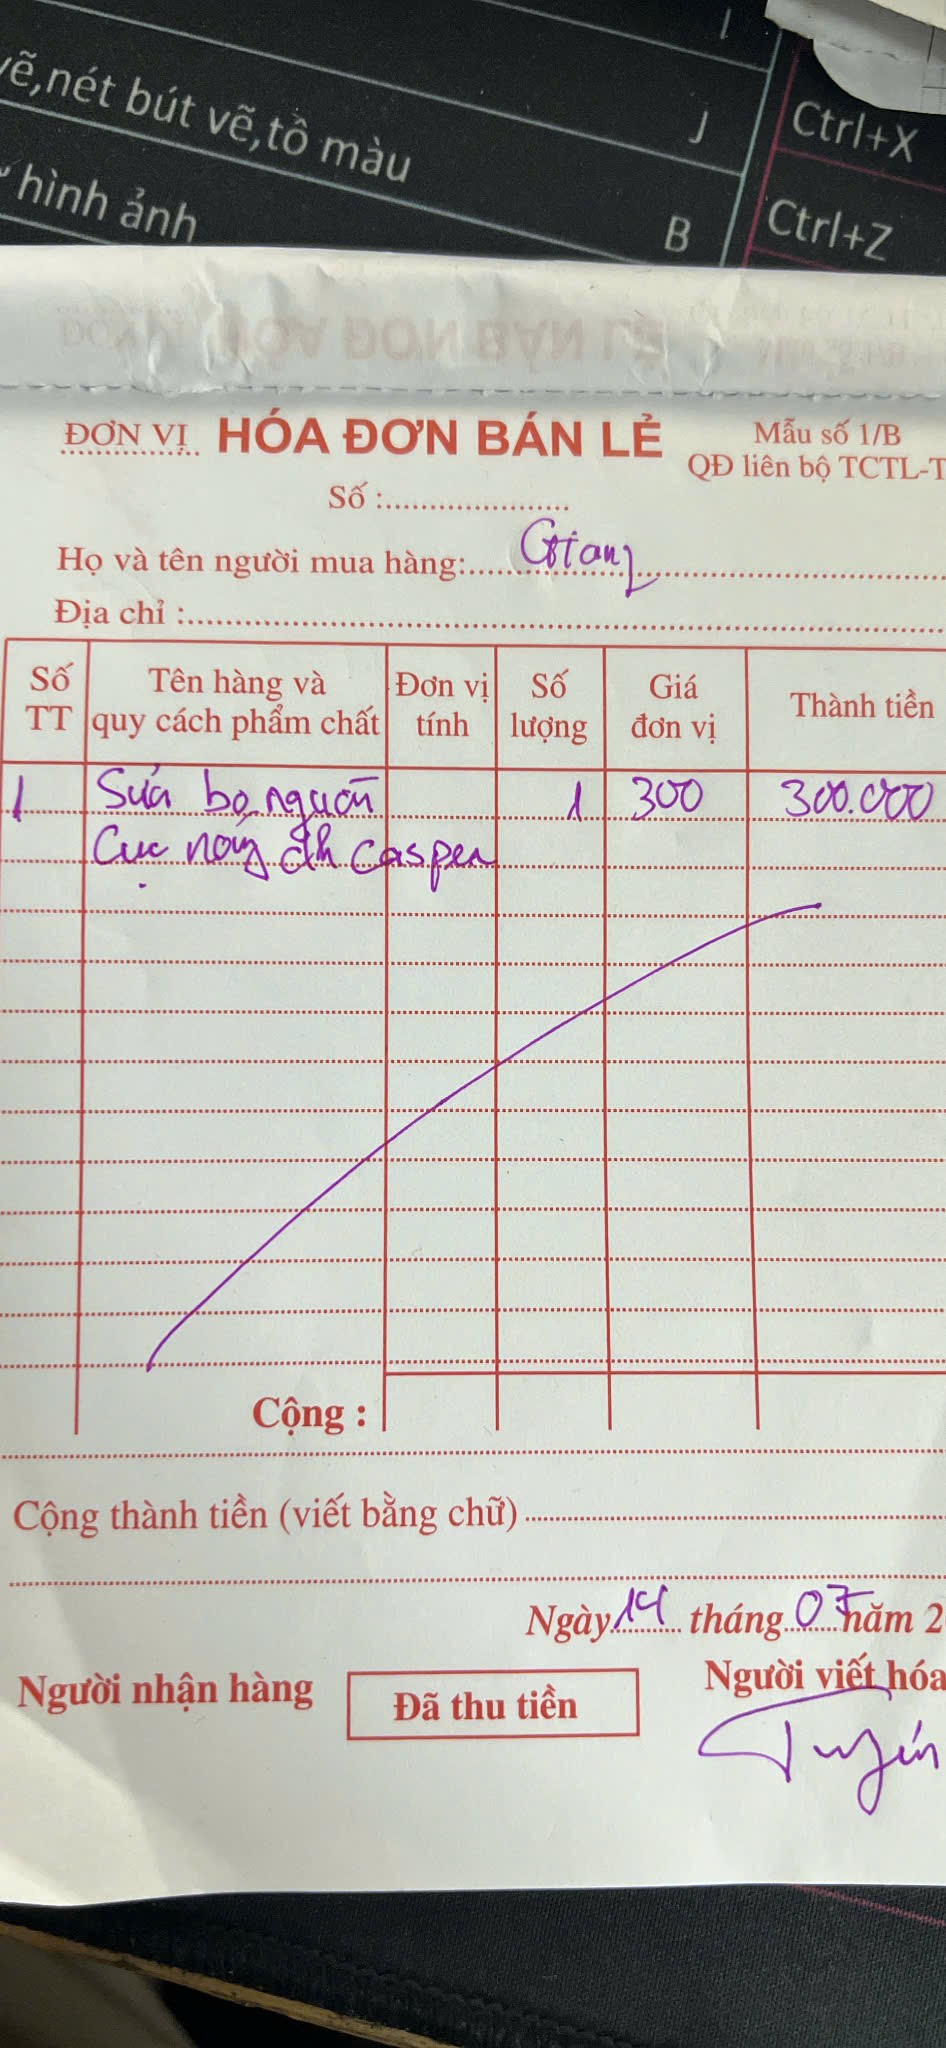 vẽ,nét bút vẽ,tô màu J Ctrl+X
hình ảnh B Ctrl+Z
ĐƠN VỊ HÓA ĐƠN BÁN LẺ Mẫu số 1/B
QĐ liên bộ TCTL-T
Số :
Họ và tên người mua hàng: Giang
Địa chỉ :
Số TT Tên hàng và quy cách phẩm chất Đơn vị tính Số lượng Giá đơn vị Thành tiền
1 Sửa bo nguồn 1 300 300.000
Cục nóng đh casper
Cộng :
Cộng thành tiền (viết bằng chữ)
Ngày 14 tháng 07 năm 2
Người nhận hàng Đã thu tiền Người viết hóa